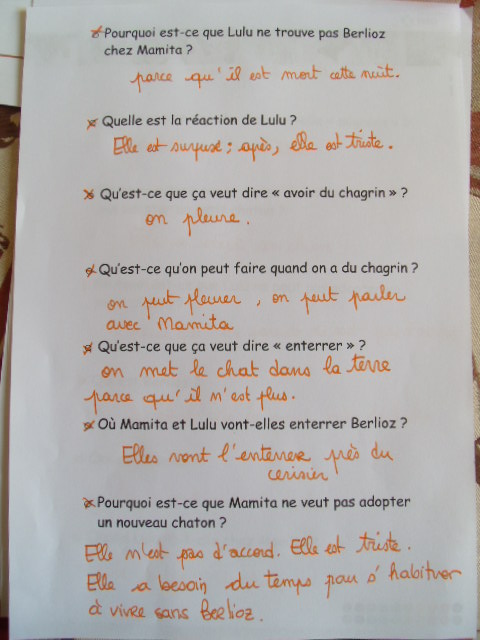 Pourquoi est-ce que Lulu ne trouve pas Berlioz
chez Mamita ?
parce qu'il est mort cette nuit.
Quelle est la réaction de Lulu ?
Elle est surprise ; après, elle est triste.
Qu'est-ce que ça veut dire « avoir du chagrin » ?
on pleure.
Qu'est-ce qu'on peut faire quand on a du chagrin ?
on peut pleurer, on peut parler
avec Mamita
Qu'est-ce que ça veut dire « enterrer » ?
on met le chat dans la terre
parce qu'il n'est plus.
Où Mamita et Lulu vont-elles enterrer Berlioz ?
Elles vont l'enterrer près du
cerisier
Pourquoi est-ce que Mamita ne veut pas adopter
un nouveau chaton ?
Elle n'est pas d'accord. Elle est triste.
Elle a besoin du temps pou s'habituer
à vivre sans Berlioz.